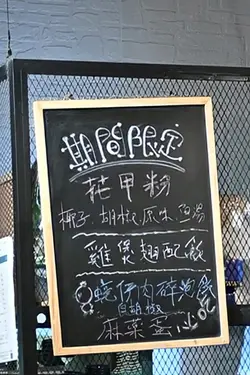 期間限定
花甲粉
椰子 胡椒 原味 魚湯
雞煲翅配飯
燒伊肉碎炒飯
白胡椒
麻葉蛋